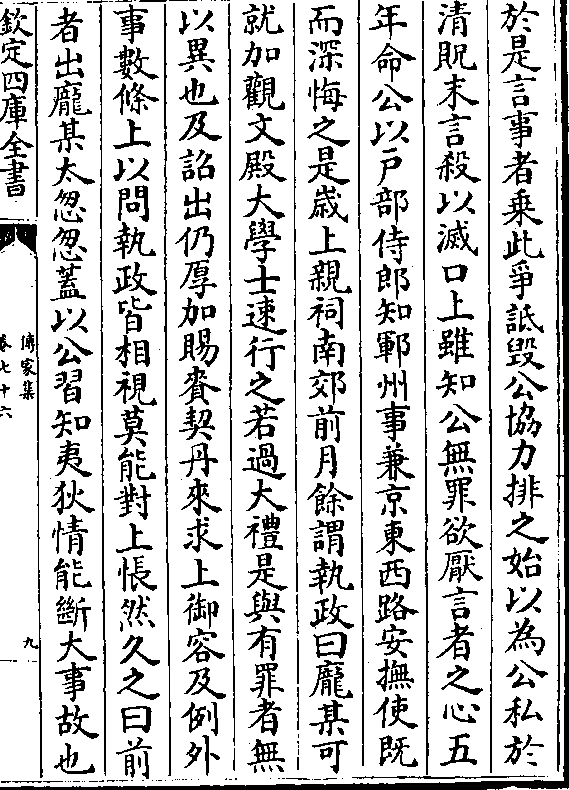 於是言事者乗此爭詆毁公協力排之始以為公私於
清貺末言殺以滅口上雖知公無罪欲厭言者之心五
年命公以戸部侍郎知鄆州事兼京東西路安撫使既
而深悔之是歲上親祠南郊前月餘謂執政曰龐某可
就加觀文殿大學士速行之若過大禮是與有罪者無
以異也及詔出仍厚加賜賚契丹來求上御容及例外
事數條上以問執政皆相視莫能對上悵然久之曰前
者出龐某太怱怱蓋以公習知夷狄情能斷大事故也
欽定四庫全書
傳家集
卷七十六
九